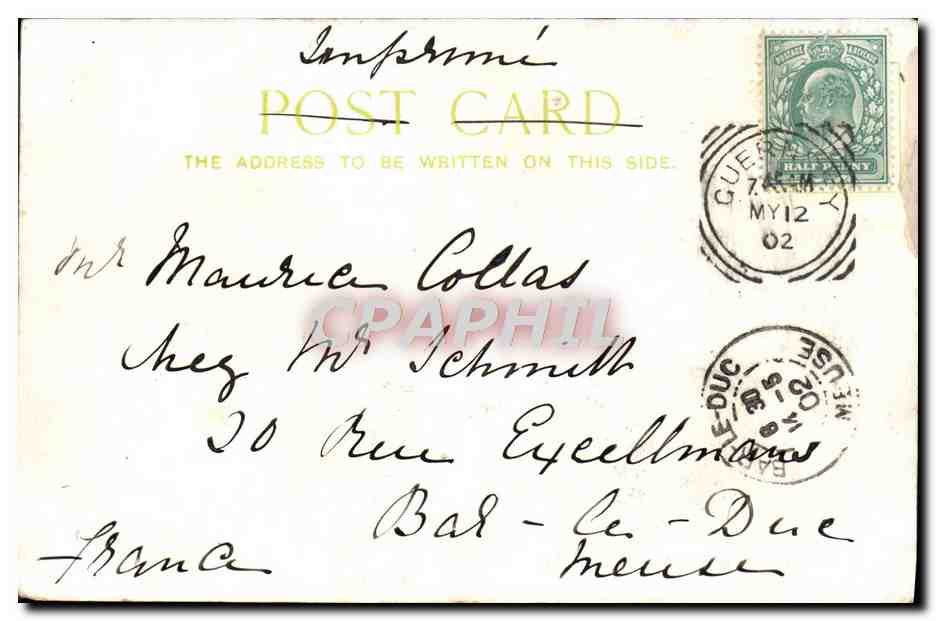 Imprimé
POST CARD
THE ADDRESS TO BE WRITTEN ON THIS SIDE.
POSTAGE & REVENUE
HALF PENNY
GUERNSEY
7.45 AM
MY 12
02
Mr Maurice Collas
CPAPHIL
chez Mr Schmitt
20 Rue Excellmans
Bar-le-Duc
Meuse
France
BAR-LE-DUC
MEUSE
8 30
14 - 5
02